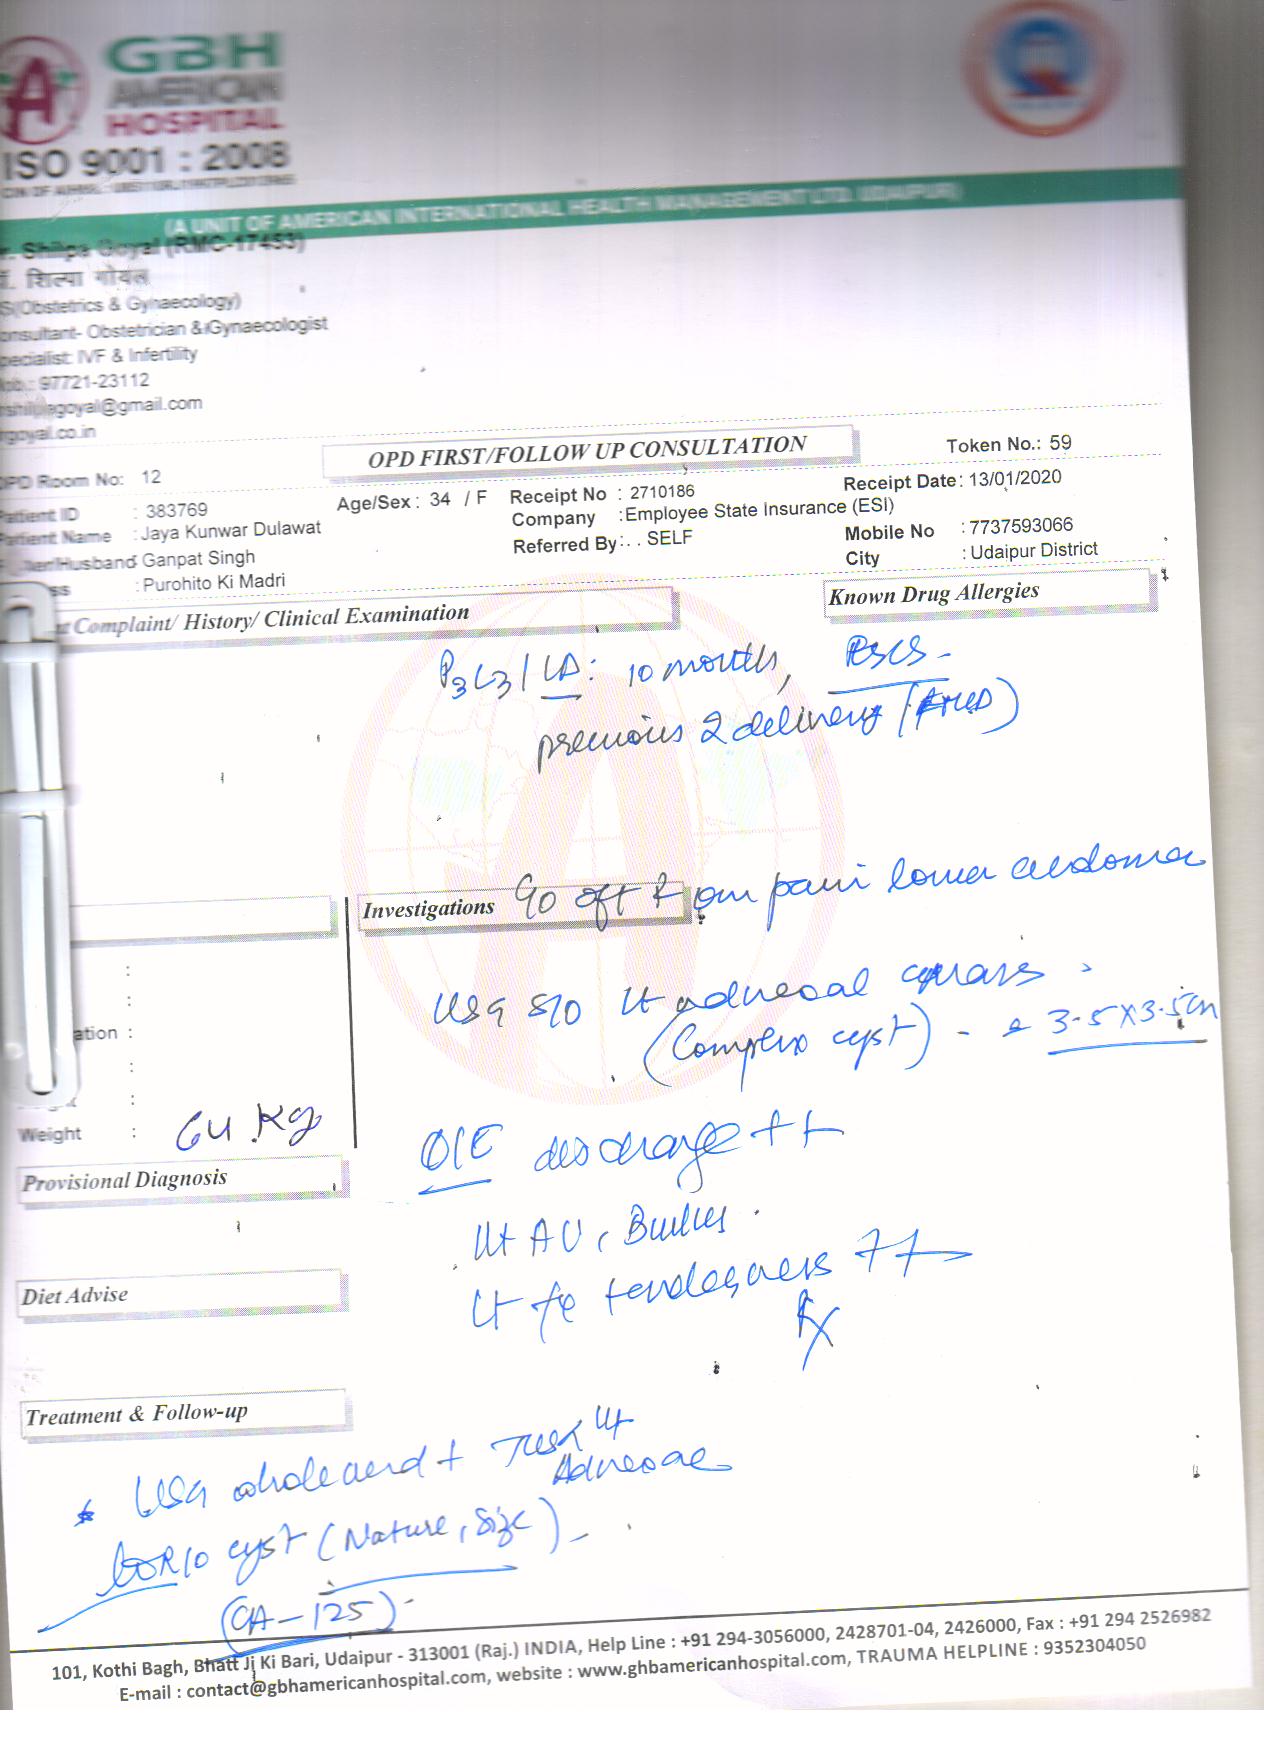 GBH
AMERICAN
HOSPITAL
ISO 9001 : 2008
(A UNIT OF AMERICAN INTERNATIONAL HEALTH MANAGEMENT LTD. UDAIPUR)
r. Shilpa Goyal (RMC-17453)
शिल्पा गोयल
(Obstetrics & Gynaecology)
onsultant- Obstetrician & Gynaecologist
pecialist: IVF & Infertility
97721-23112
goyal@gmail.com
rgoyal.co.in
OPD FIRST/FOLLOW UP CONSULTATION
Token No.: 59
OPD Room No: 12
Patient ID : 383769
Age/Sex : 34 / F
Receipt No : 2710186
Receipt Date : 13/01/2020
Patient Name : Jaya Kunwar Dulawat
Company : Employee State Insurance (ESI)
Mobile No : 7737593066
er/Husband : Ganpat Singh
Referred By : . . SELF
City : Udaipur District
ss : Purohito Ki Madri
t Complaint/ History/ Clinical Examination
Known Drug Allergies
P3L3 / LD: 10 months,
previous 2 delivery
Investigations
pain lower abdomen
USG S/O Lt adnexal
(Complex cyst) - 3.5X3.5cm
ation :
Weight : 64 Kg
O/E discharge ++
Provisional Diagnosis
Ut AV, Bulky
Diet Advise
Lt fx tenderness ++
Rx
Treatment & Follow-up
* USG whole abd +
Adnexae
R/O cyst (Nature, Size) -
(CA-125) -
101, Kothi Bagh, Bhatt Ji Ki Bari, Udaipur - 313001 (Raj.) INDIA, Help Line : +91 294-3056000, 2428701-04, 2426000, Fax : +91 294 2526982
E-mail : contact@gbhamericanhospital.com, website : www.ghbamericanhospital.com, TRAUMA HELPLINE : 9352304050